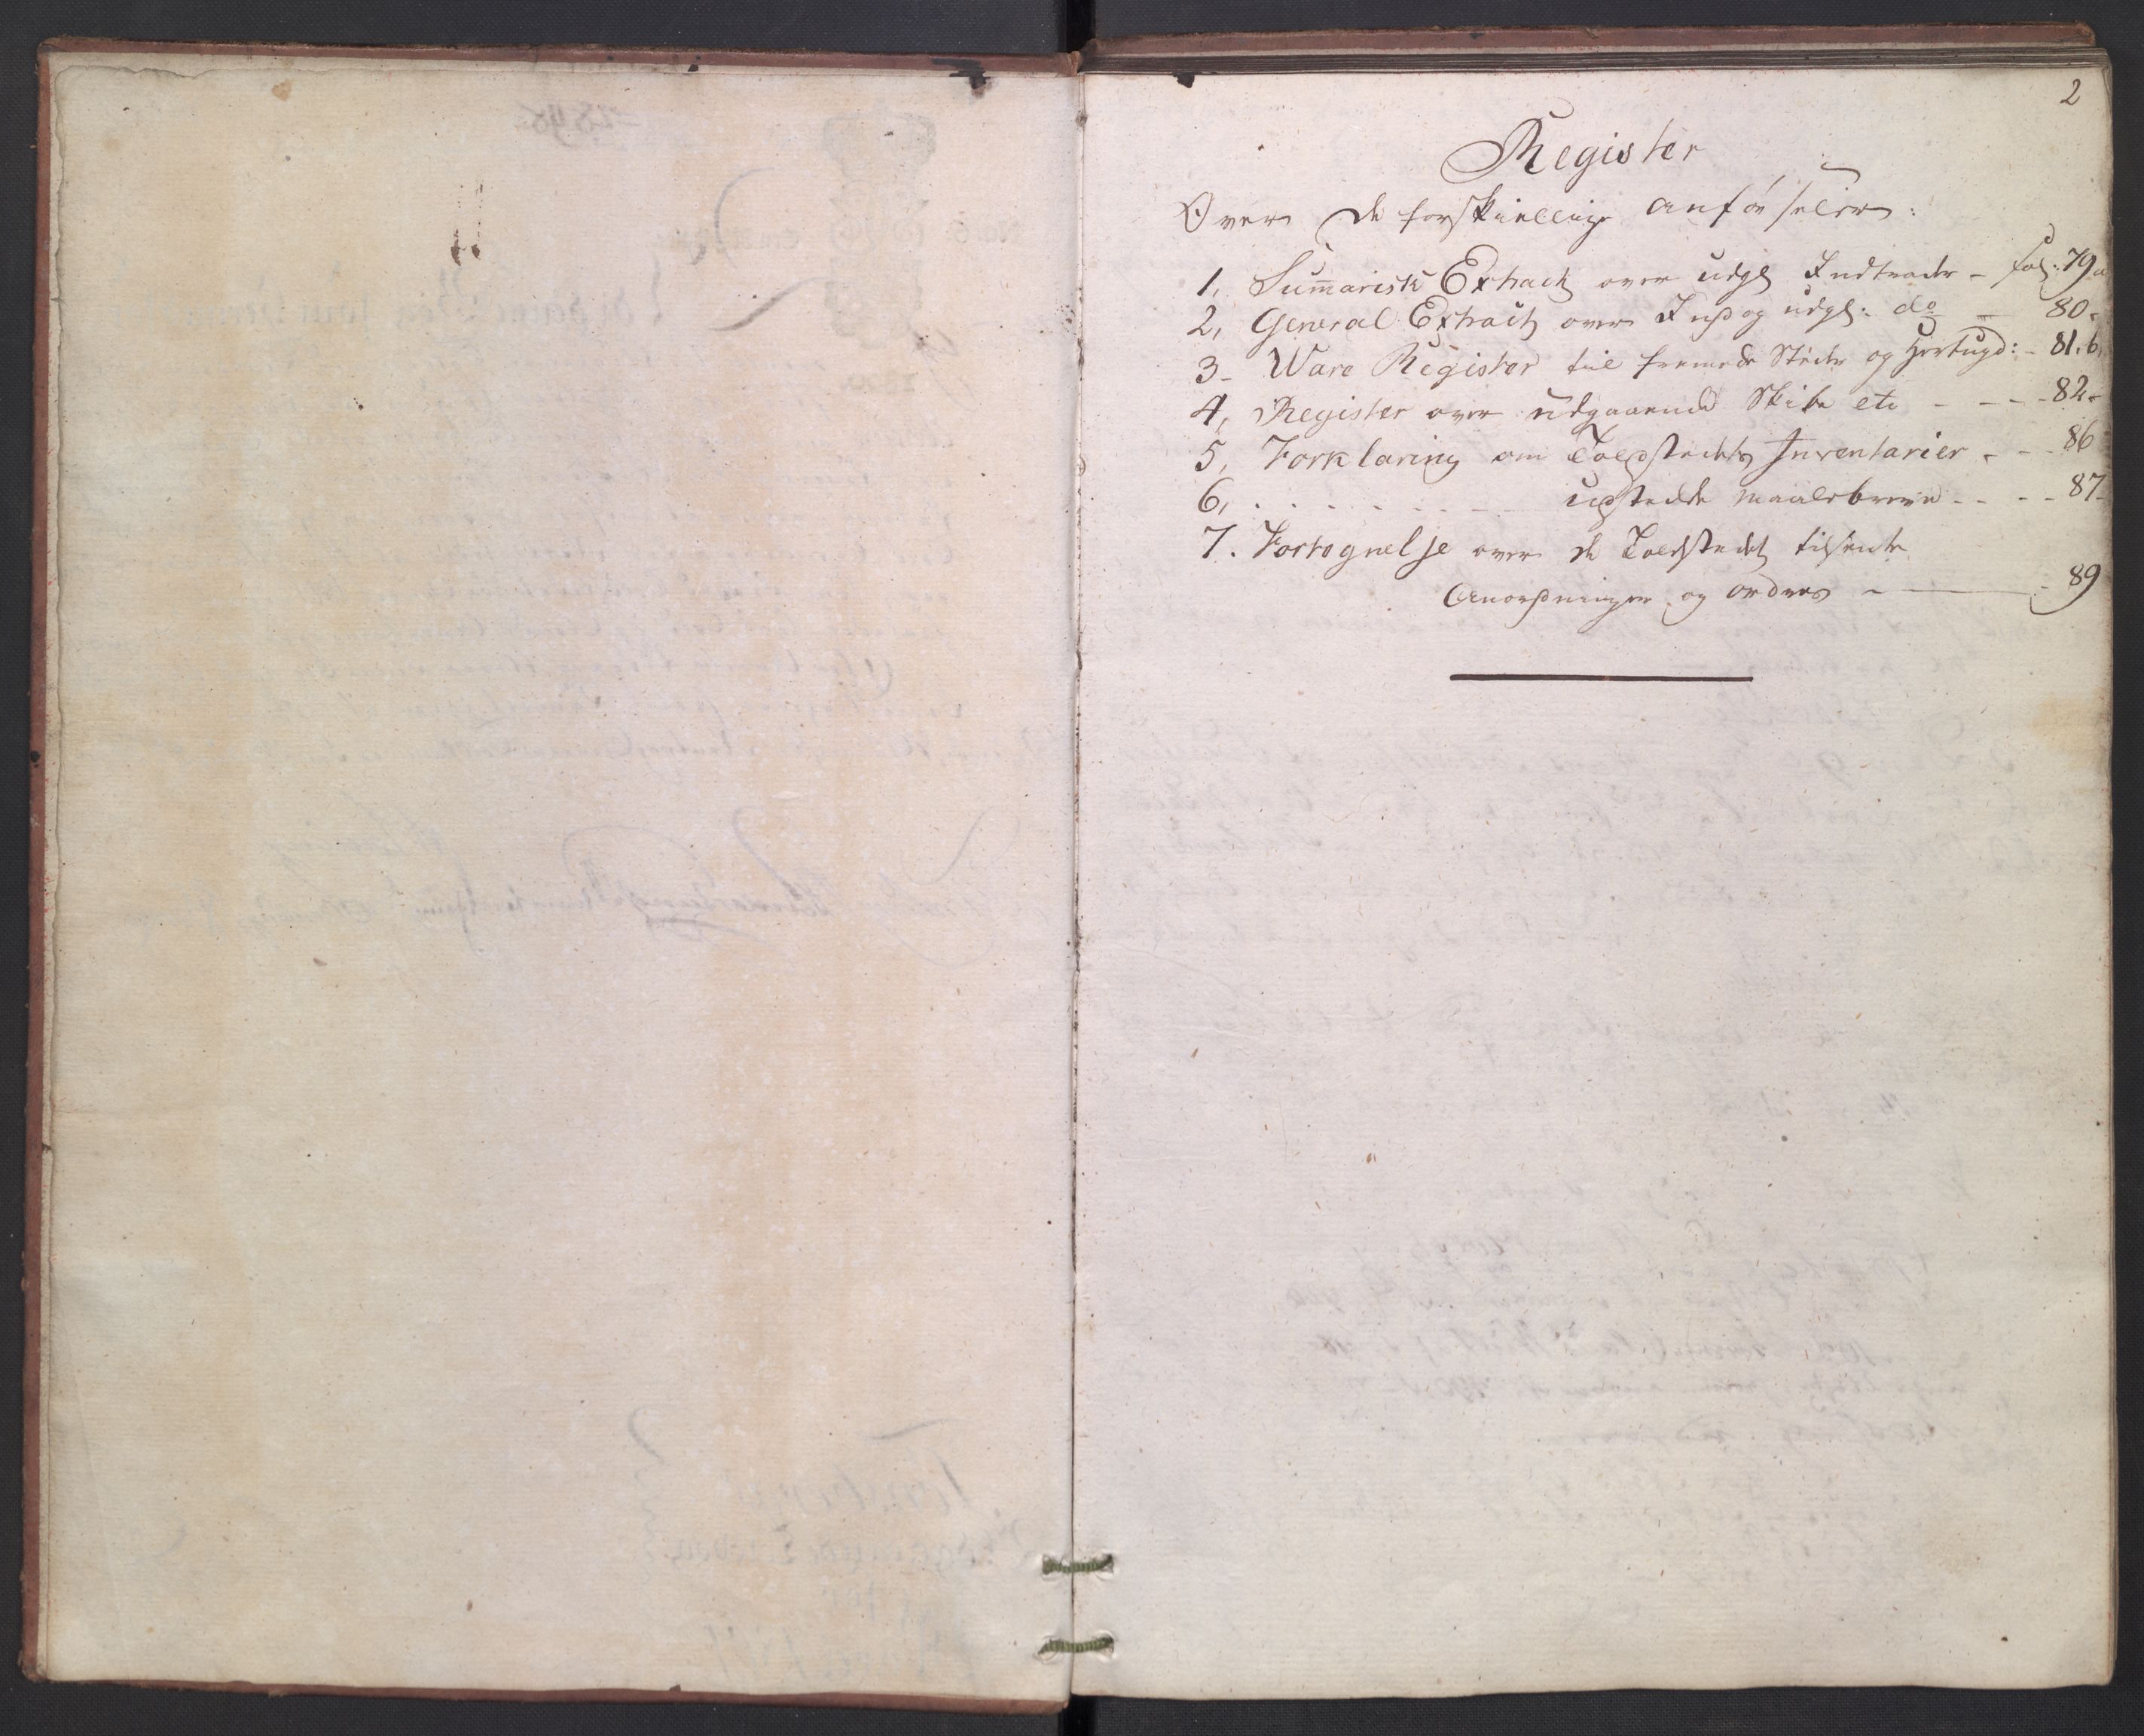 2
Register
Over de forskiellige anførseler:
1, Summarisk Extract over udgl Indtræder - fol: 79 a
2, General Extract over Ind og udgl: do — 80 -
3 - Ware Register til fremede Stæder og Hertugd: - 81. b.
4, Register over udgaaende Skibe etc - - - - 82 -
5, Forklaring om Toldstedets Inventarier - - - 86
6, . . . . . . . . udstædde maalebreve - - - - 87 -
7. Fortegnelse over de Toldstedet tilsendte
Anordninger og ordres - — - 89